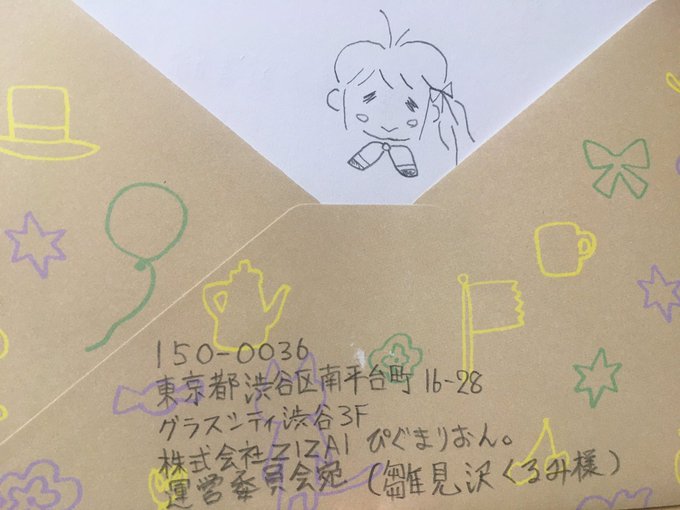 150-0036
東京都渋谷区南平台町16-28
グラスシティ渋谷3F
株式会社ZIZAI ぴぐまりおん。
運営委員会宛 (雛見沢くるみ様)